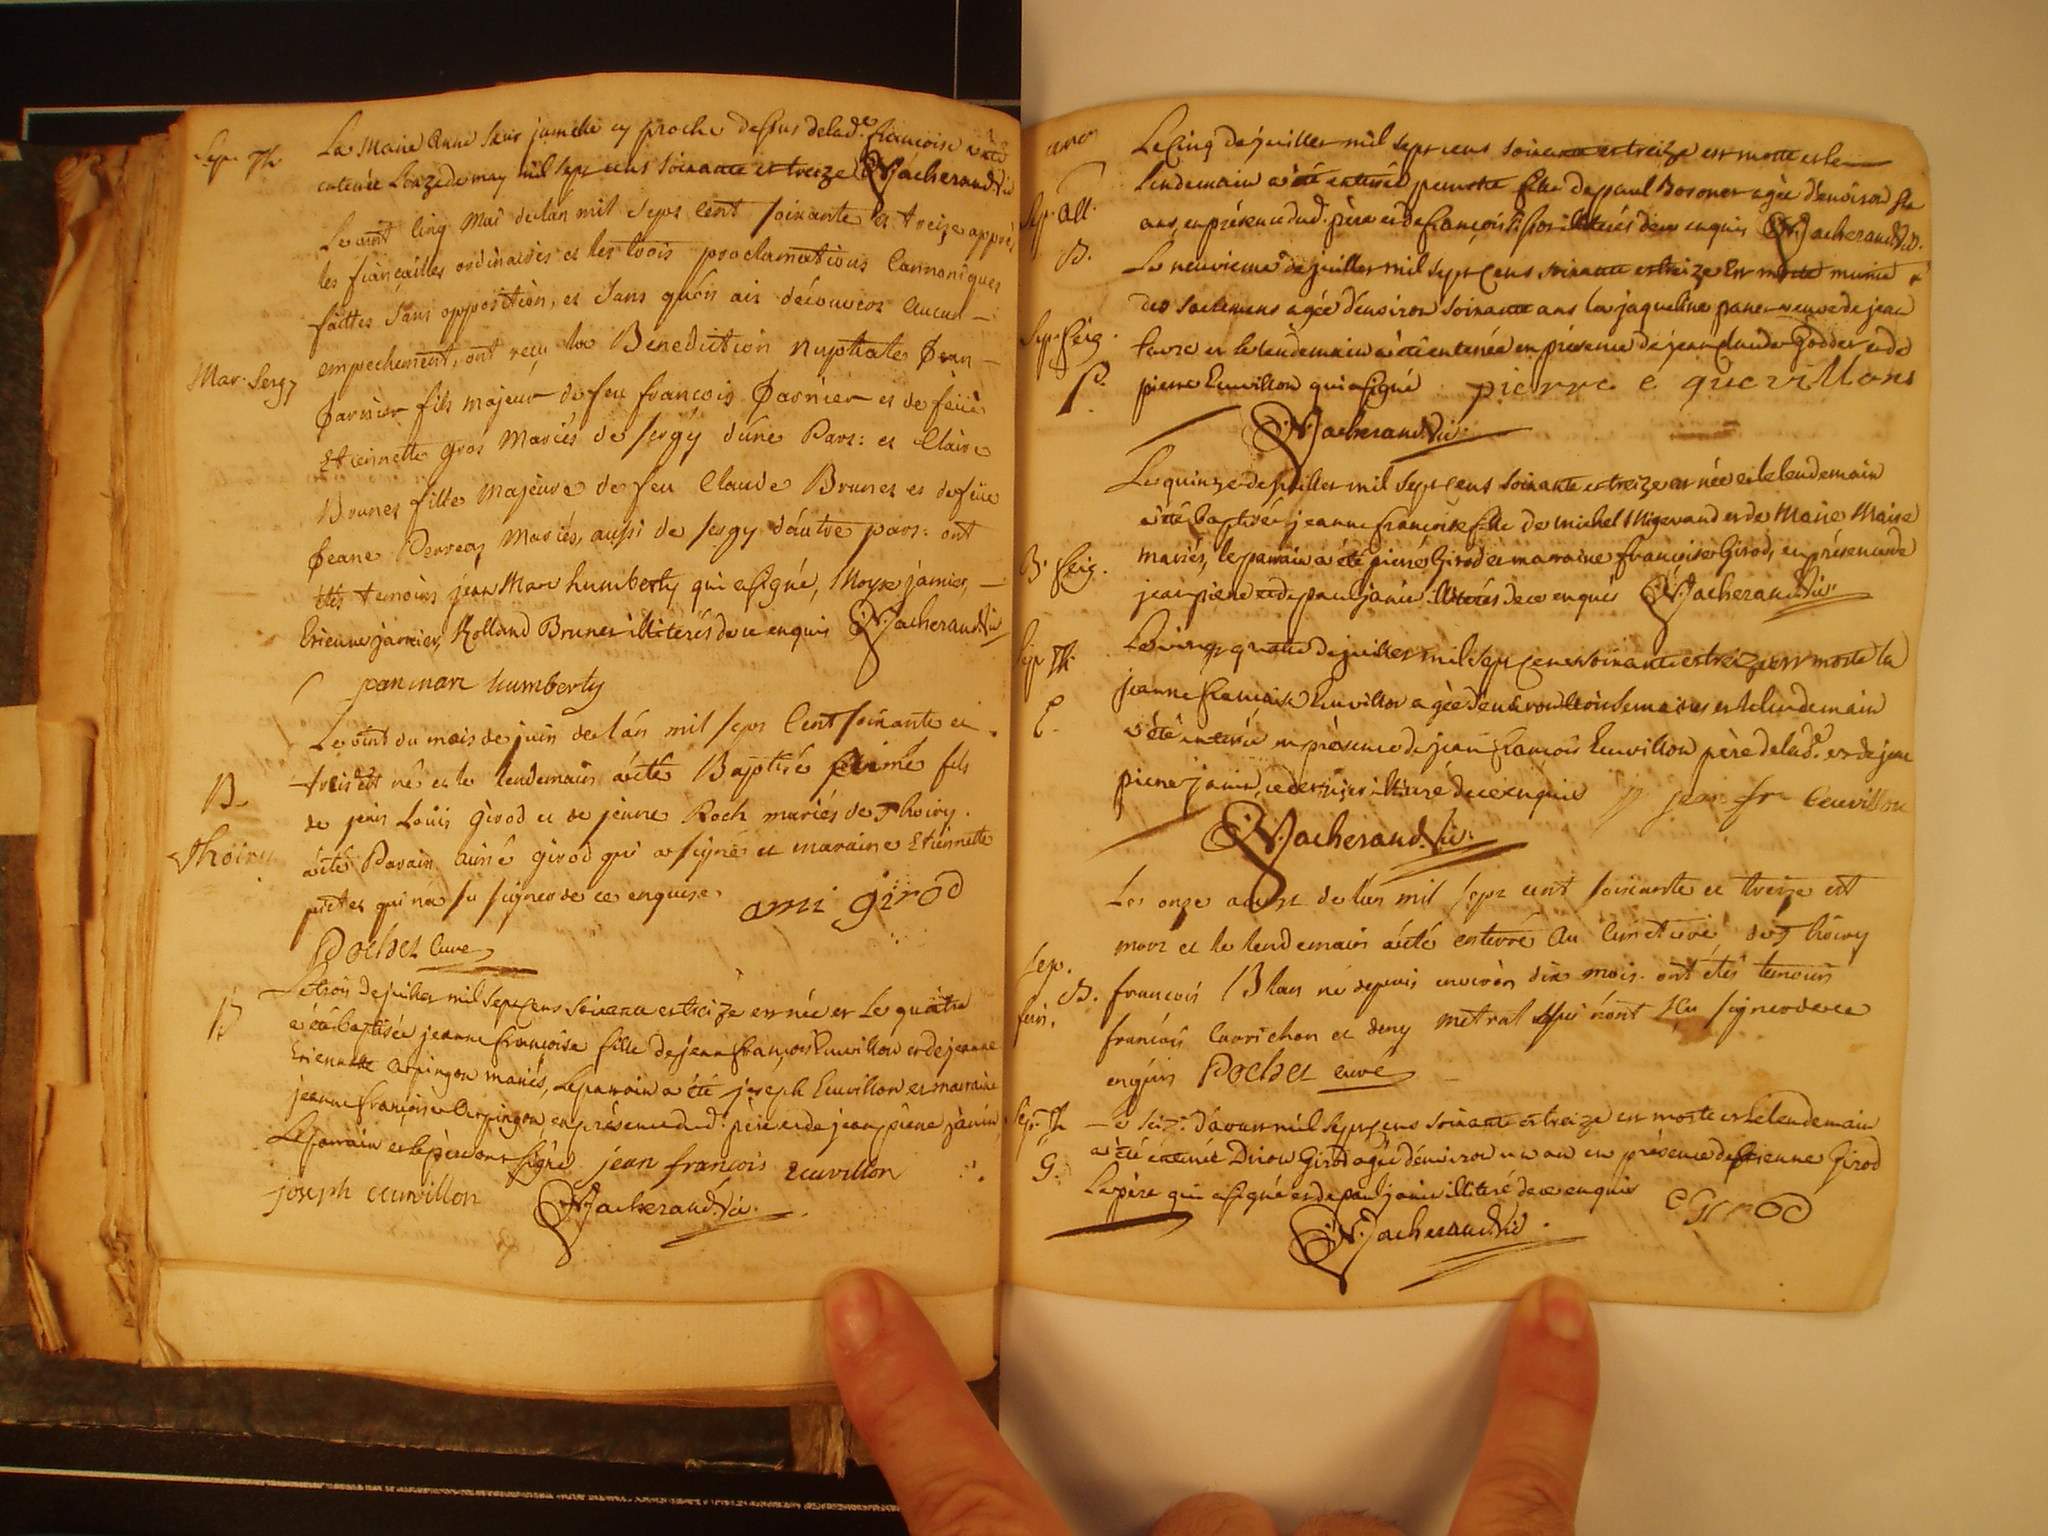 Sep. Th.
La Marie Anne sœur jumelle cy proche dessus de lad.e françoise a été
enterrée l'onze de may mil sept cens soixante et treize N. Jacherand. Vic
Le vint cinq Mai de l'an mil sept cent soixante et treize apprès
les fiançailles ordinaires et les trois proclamations Cannoniques
faittes sans opposition, et sans qu'on ait découvert aucun
Mar. Sergy
empechement, ont reçu la Benediction nuptiale Jean
Jarnier fils majeur de feu françois Jarnier et de feüe
Etiennette gros mariés de sergy d'une Part: et Claire
Brunet fille majeure de feu Claude Brunet et de feüe
Jeane Perreaz mariés, aussi de sergy d'autre part: ont
étés temoins jean Marc humberty qui a signé, Moyse jarnier,
Etienne jarnier, Rolland Brunet illiterés de ce enquis N. Jacherand. Vic
jean marc humberty
Le vint du mois de juin de l'an mil sept Cent soixante et
treis est né et le lendemain a été Baptisé aimé fils
B.
de jean Louis girod et de jeane Roch mariés de Thoiry.
Thoiry
a été Parain aimé girod qui a signé et maraine Etiennette
pictet qui n'a su signer de ce enquise. ami girod
Pochet Curé
Le trois de juillet mil sept cens soixante et treize est née et le quatre
B
a été baptisée jeanne françoise fille de jean françois Cuvillon et de jeanne
Etiennette Carpingon mariés, Le parrain a été joseph Cuvillon et marraine
jeanne françoise Carpingon en présence dud. père et de jean pierre janin
Le parrain et le père ont signé jean francois ecuvillon
joseph ecuvillon N. Jacherand. Vic.
Le Cinq de juillet mil sept cens soixante et treize est morte et le
lendemain a été enterrée pernette fille de paul Bosonet agée d'environ six
Sep. All.
ans, en présence dud. père et de françois illiterés de ce enquis N. Jacherand. Vic.
B.
Le neuvieme de juillet mil sept cens soixante et treize est morte munie
des sacremens agée d'environ soixante ans la jaqueline panet veuve de jean
Sep. feig.
favre et le lendemain a été enterrée en présence de jean claude Godder et de
P.
pierre Cuvillon qui a signé pierre e quevillons
N. Jacherand. Vic.
Le quinze de juillet mil sept cens soixante et treize est née et le lendemain
a été baptisée jeanne françoise fille de michel Migerand et de Marie Maire
B. feig.
mariés, le parrain a été pierre Girod et marraine françoise Girod, en présence de
jean pierre et de paul janin illiterés de ce enquis N. Jacherand. Vic.
Sep. Th.
Le vingt quatre de juillet mil sept cens soixante et treize est morte la
jeanne françoise Cuvillon agée d'environ trois semaines et le lendemain
C.
a été enterrée en présence de jean françois Cuvillon père de lad.e et de jean
pierre janin, ce dernier illiteré de ce enquis jean fr Ceuvillon
N. Jacherand. Vic.
Les onze aoust de l'an mil sept cent soixante et treize est
mort et le lendemain a été enterré au Cimetiere de Thoiry
Sep.
B. françois Blan né depuis environ dix mois. ont étés temoins
françois Corrichon et deny métral qui n'ont su signer de ce
enquis Pochet curé
Sep. Th.
Le seize d'aoust mil sept cens soixante et treize est morte et le lendemain
G.
a été enterrée Girod agée d'environ un an en présence d'Etienne Girod
Le père qui a signé et de paul janin illiteré de ce enquis e Girod
N. Jacherand. Vic.